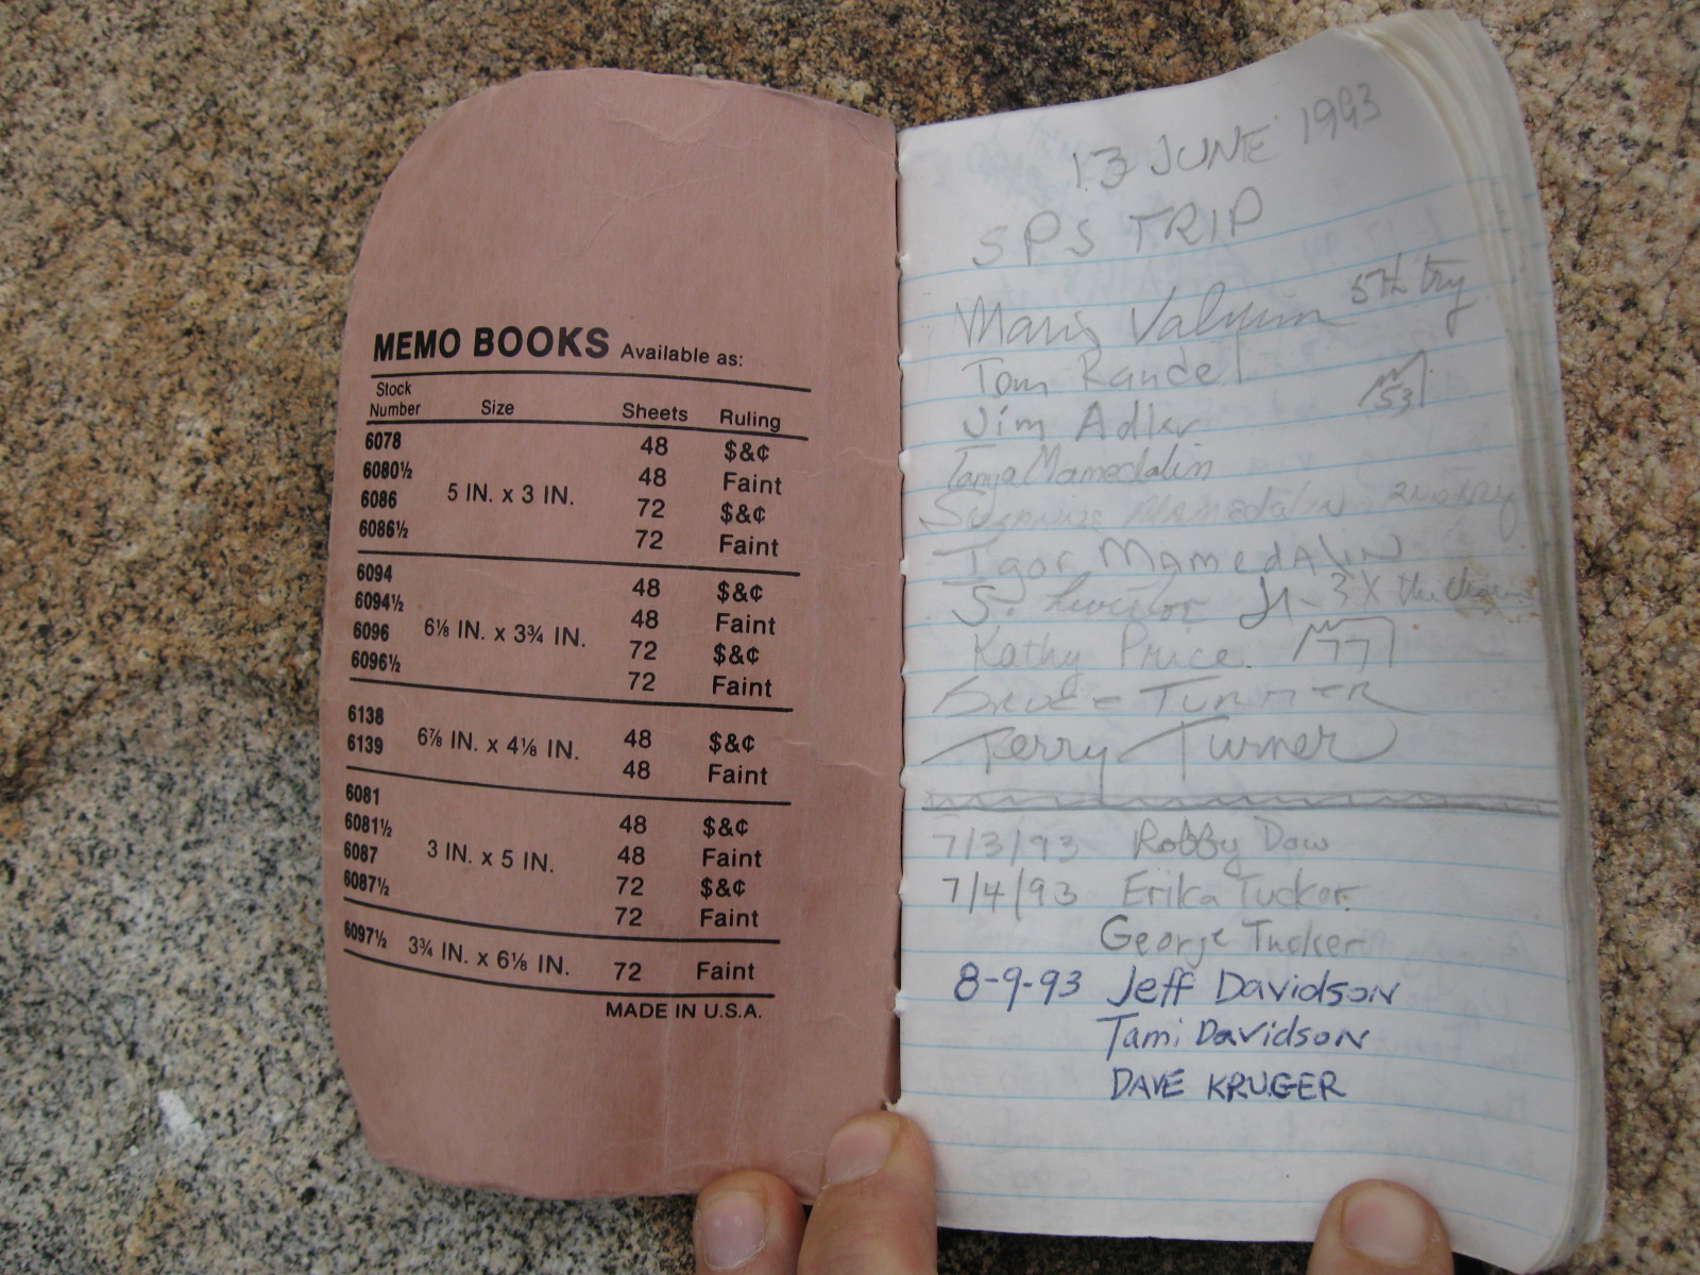 MEMO BOOKS Available as:
Stock Number Size Sheets Ruling
6078 48 $&¢
6080½ 48 Faint
5 IN. x 3 IN.
6086 72 $&¢
6086½ 72 Faint
6094 48 $&¢
6094½ 48 Faint
6⅛ IN. x 3¾ IN.
6096 72 $&¢
6096½ 72 Faint
6138 48 $&¢
6⅞ IN. x 4⅛ IN.
6139 48 Faint
6081 48 $&¢
6081½ 48 Faint
3 IN. x 5 IN.
6087 72 $&¢
6087½ 72 Faint
6097½ 3¾ IN. x 6⅛ IN. 72 Faint
MADE IN U.S.A.
13 JUNE 1993
SPS TRIP
Maris Valkass 5th try
Tom Randel
Jim Adler 53
Tanja Mamedalin
Suzanne Mamedalin 2nd try
Igor MamedAliN
S. 3X the charm
Kathy Price 77
Bruce TURNER
Terry Turner
7/3/93 Robby Dow
7/4/93 Erika Tucker
George Tucker
8-9-93 Jeff Davidson
Tami Davidson
DAVE KRUGER